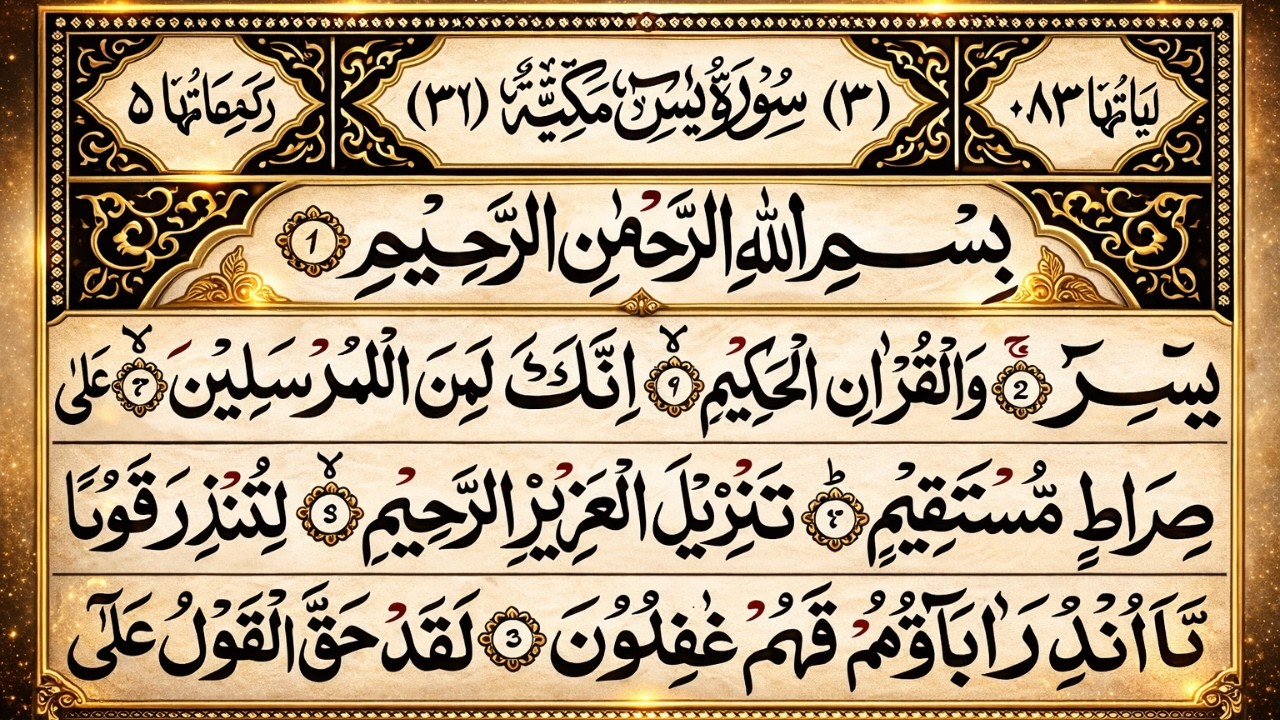 لياتها ٠٨٣
(٣) سُورَةُ يٰسٓ مَكِّيَّةٌ (٣٦)
ركعفاتها ۵
بِسْمِ اللهِ الرَّحْمٰنِ الرَّحِيْمِ 1
يٰسٓرٓ 2 وَالْقُرْاٰنِ الْحَكِيْمِ ٩ اِنَّكَ لَمِنَ اللمُرْسَلِيْنَ ۴ عَلٰى
صِرَاطٍ مُّسْتَقِيْمٍ ٤ تَنْزِيْلَ الْعَزِيْزِ الرَّحِيْمِ 3 لِتُنْذِرَ قَوْمًا
مَّا اُنْذِرَ اٰبَآؤُمُمْ فَهُمْ غٰفِلُوْنَ 3 لَقَدْ حَقَّ الْقَوْلُ عَلٰٓى